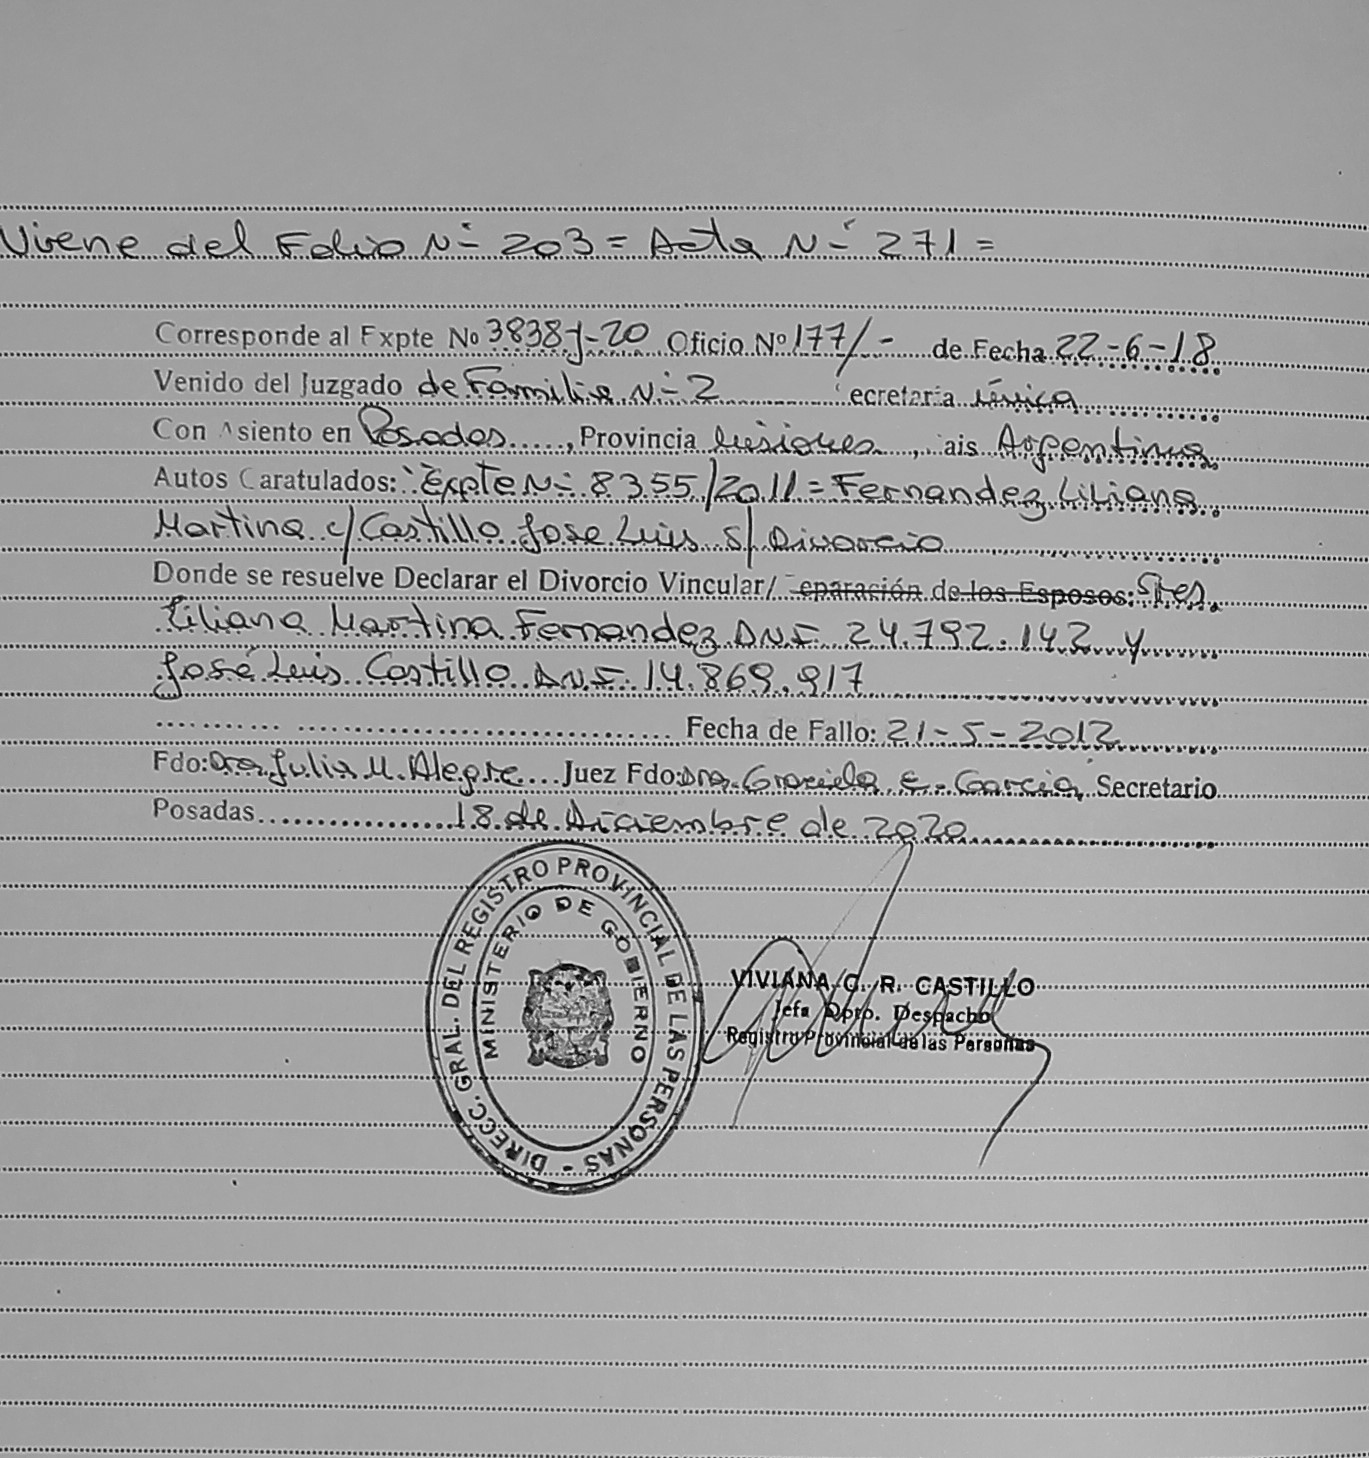 Viene del Folio N- 203 = Acta N- 271 =
Corresponde al Expte No 3838-J-20 Oficio Nº 177/- de Fecha 22-6-18
Venido del Juzgado de Familia N- 2 ecretaria única
Con Asiento en Posadas....., Provincia Misiones, ais Argentina
Autos Caratulados: "Expte N- 8355/2011 = Fernandez Liliana
Martina c/ Castillo Jose Luis s/ Divorcio
Donde se resuelve Declarar el Divorcio Vincular/ eparación de los Esposos: Sres.
Liliana Martina Fernandez D.N.I. 24.792.142 y
José Luis Castillo D.N.I. 14.869.917
Fecha de Fallo: 21-5-2012
Fdo: Dra. Julia M. Alegre.... Juez Fdo: Dra. Graciela E. Garcia, Secretario
Posadas 18 de Diciembre de 2020
DIRECC. GRAL. DEL REGISTRO PROVINCIAL DE LAS PERSONAS -
MINISTERIO DE GOBIERNO
VIVIANA C. R. CASTILLO
Jefa Dpto. Despacho
Registro Provincial de las Personas